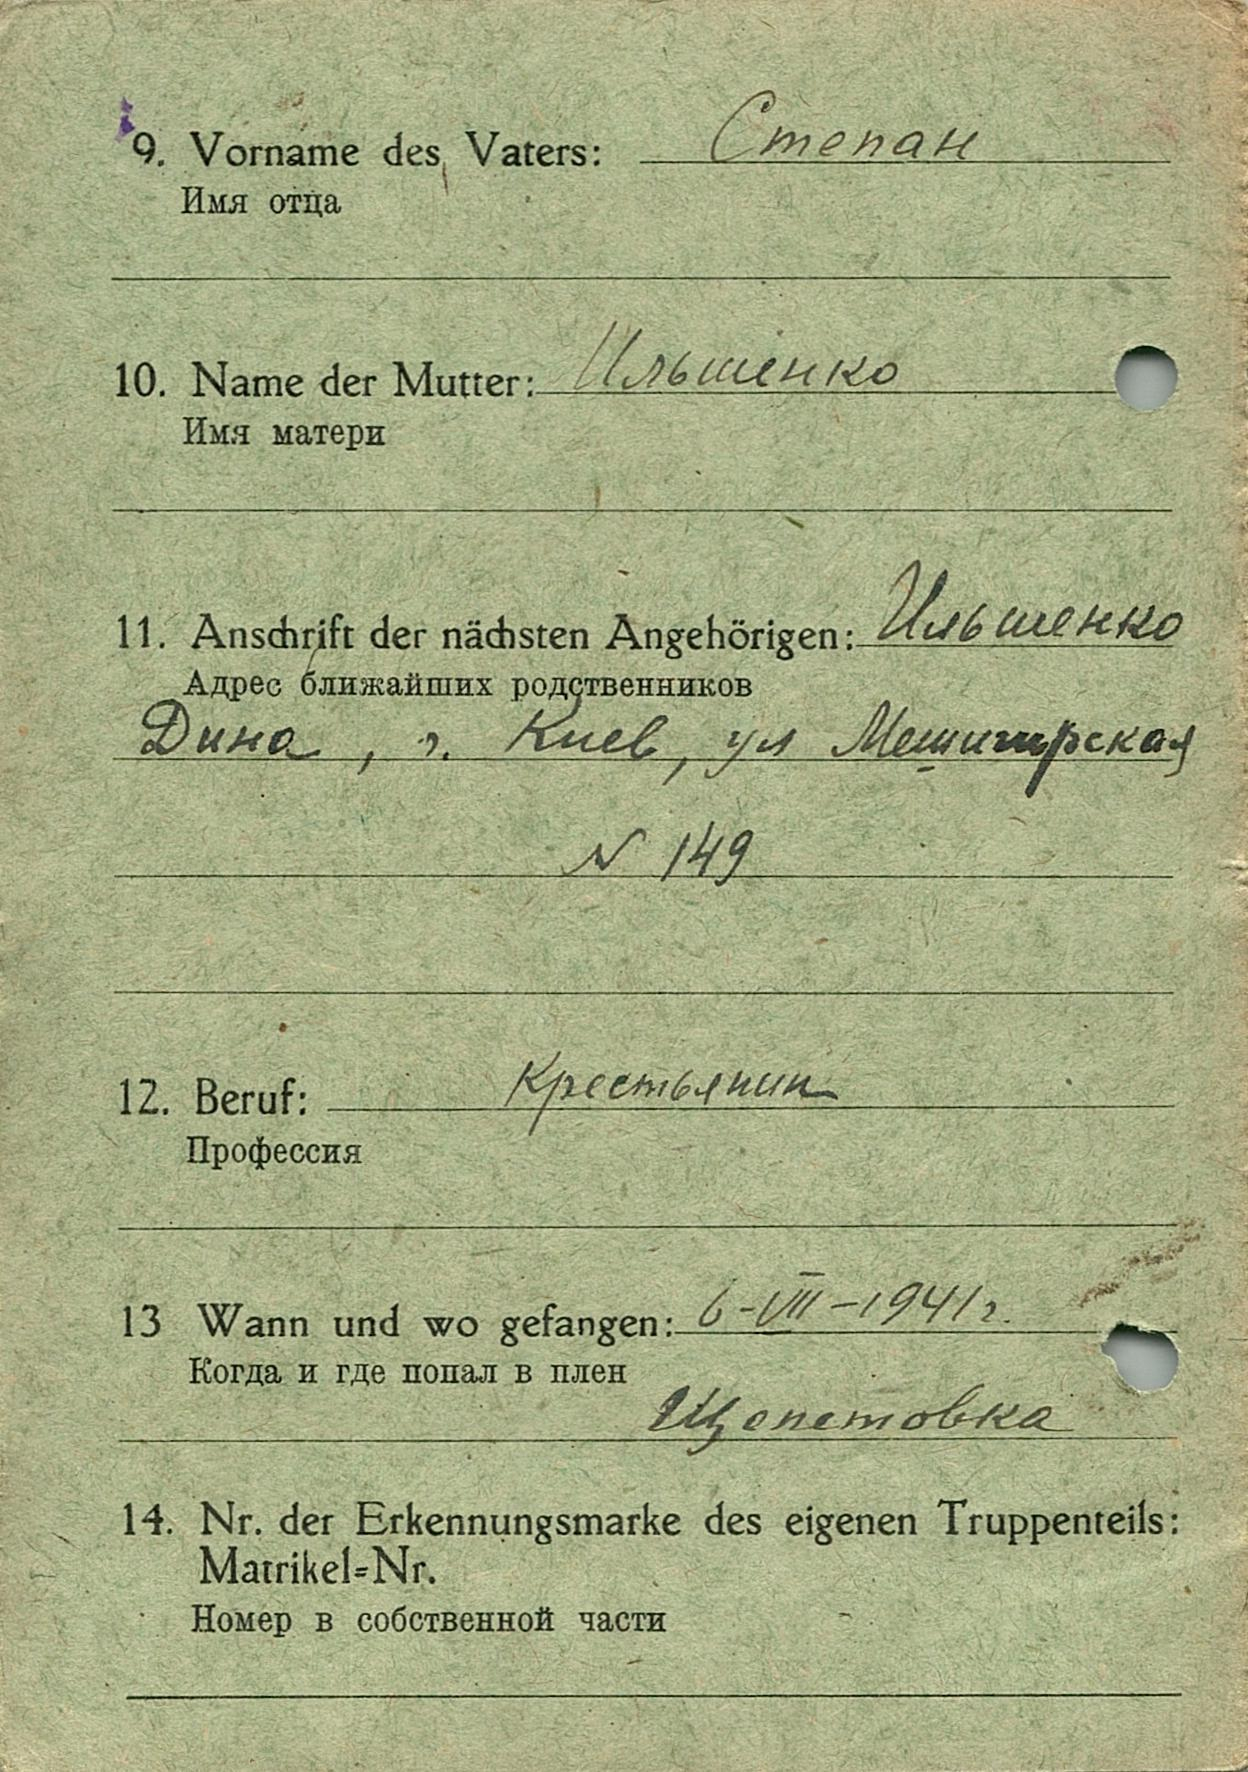 9. Vorname des Vaters: Степан
Имя отца
10. Name der Mutter: Ильшенко
Имя матери
11. Anschrift der nächsten Angehörigen: Ильшенко
Адрес ближайших родственников
Дина, г. Киев, ул Мешигирская
N 149
12. Beruf: Крестьянин
Профессия
13 Wann und wo gefangen: 6-VII-1941 г.
Когда и где попал в плен
Щепетовка
14. Nr. der Erkennungsmarke des eigenen Truppenteils:
Matrikel=Nr.
Номер в собственной части